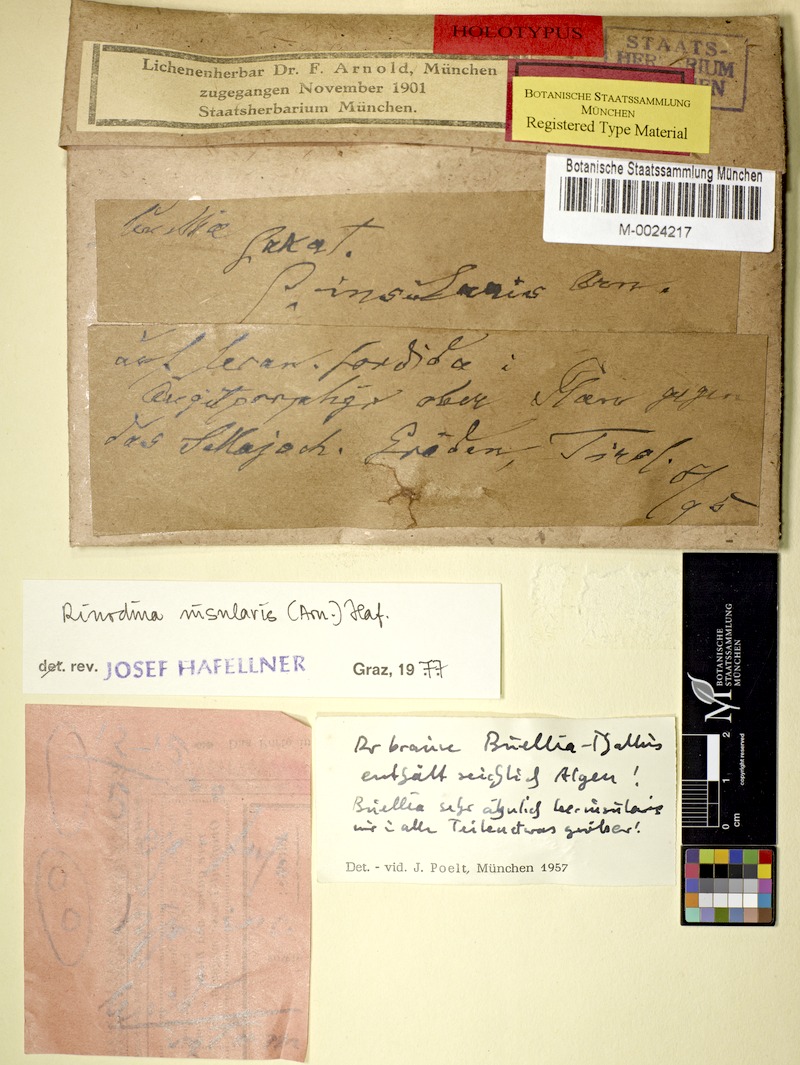 HOLOTYPUS
STAATS-
HERBARIUM
MÜNCHEN
Lichenenherbar Dr. F. Arnold, München
zugegangen November 1901
Staatsherbarium München.
BOTANISCHE STAATSSAMMLUNG
MÜNCHEN
Registered Type Material
Botanische Staatssammlung München
M-0024217
Buellia
f. insularis Arn.
auf Lecan. sordida i
Augitporphyr ober Plan gegen
das Sellajoch. Gröden, Tirol. 8/95
Rinodina insularis (Arn.) Haf.
det. rev. JOSEF HAFELLNER Graz, 1977
Der braune Buellia-Thallus
enthält reichlich Algen!
Buellia sehr ähnlich der insularis
nur i allen Teilen etwas gröber!
Det. - vid. J. Poelt, München 1957
BOTANISCHE
STAATSSAMMLUNG
MÜNCHEN
copyright reserved
0 1 2
cm